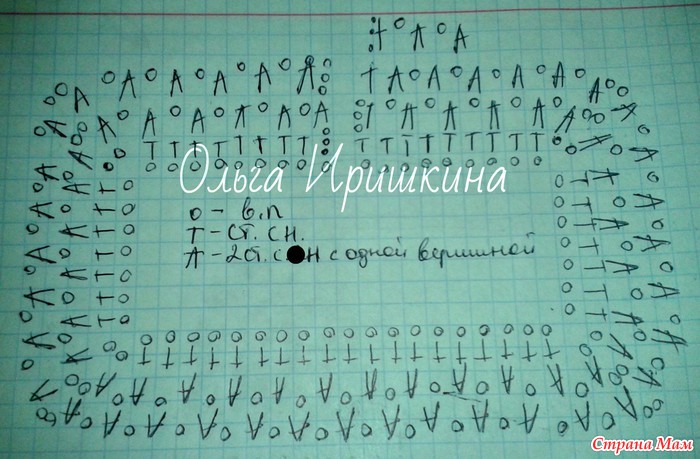 Ольга Иришкина
о - в.п
т - ст. сн.
А - 2 ст. с н с одной вершиной
Страна Мам